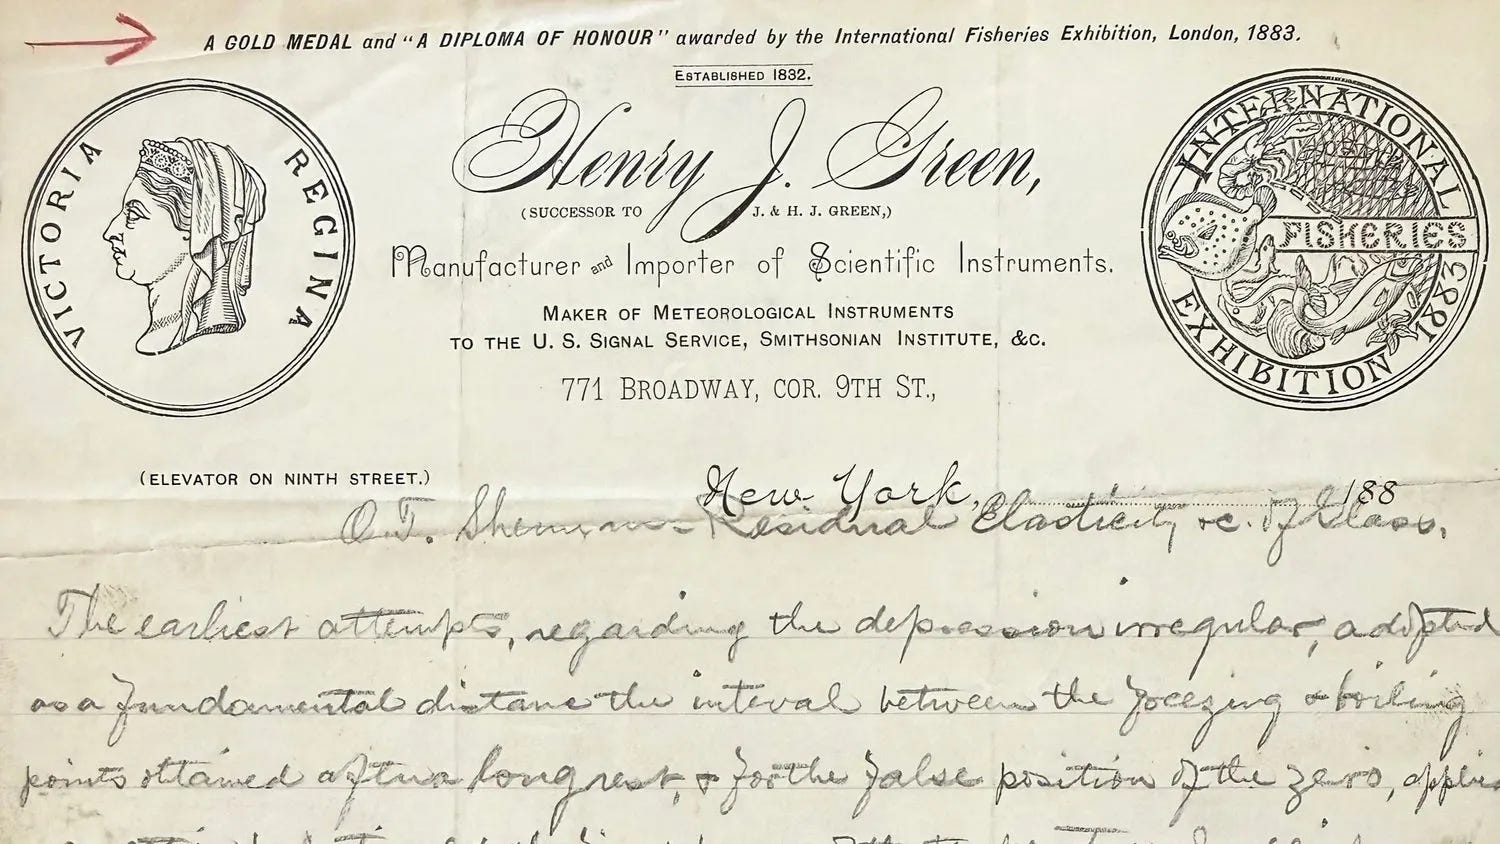 A GOLD MEDAL and “A DIPLOMA OF HONOUR” awarded by the International Fisheries Exhibition, London, 1883.
ESTABLISHED 1832.
VICTORIA REGINA
Henry J. Green,
(SUCCESSOR TO J. & H. J. GREEN,)
Manufacturer and Importer of Scientific Instruments.
MAKER OF METEOROLOGICAL INSTRUMENTS
TO THE U. S. SIGNAL SERVICE, SMITHSONIAN INSTITUTE, &C.
771 BROADWAY, COR. 9TH ST.,
INTERNATIONAL
FISHERIES
EXHIBITION 1883
(ELEVATOR ON NINTH STREET.)
New York, 188
O.T. Sherman - Residual Elasticity &c. of Glass.
The earliest attempts, regarding the depression irregular, adopted
as a fundamental distance the interval between the freezing & boiling
points obtained after a long rest, & for the false position of the zero, applied